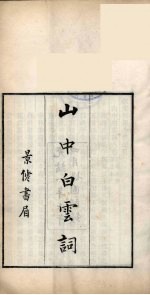 山中白雲詞
景偕書眉